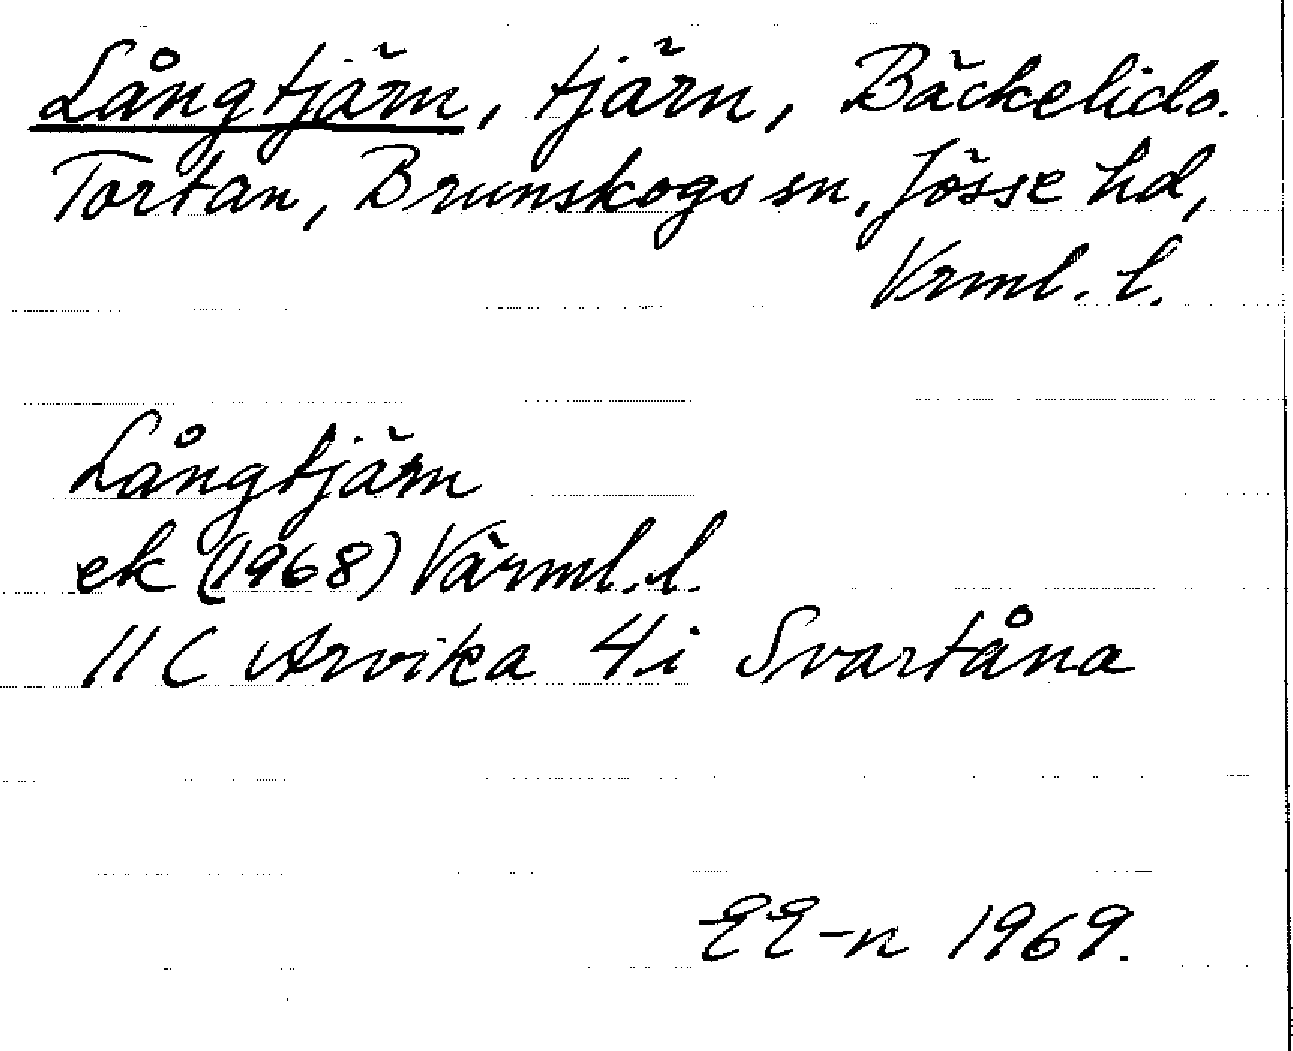 Långtjärn, tjärn, Bäckelids.
Tortan, Brunskogs sn, Jösse hd,
Vrml. l.
Långtjärn
ek (1968) Värml. l.
11 C Arvika 4i Svartåna
EE-n 1969.